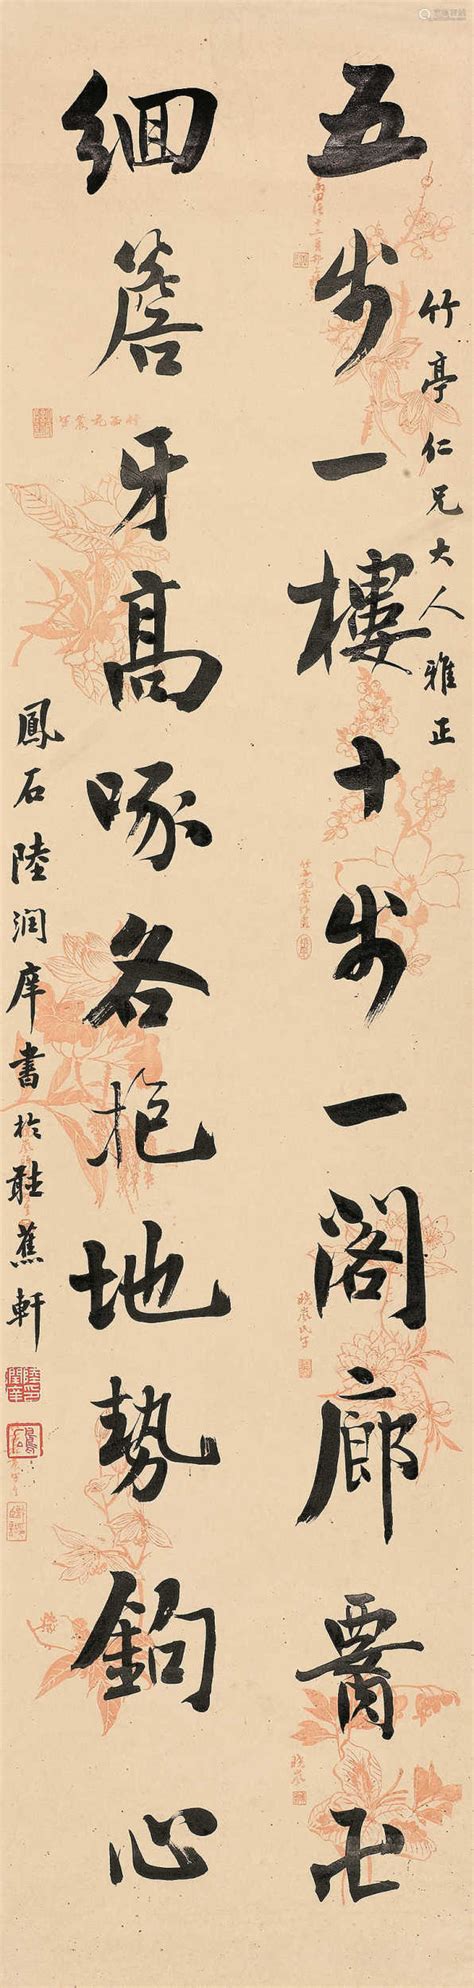 竹亭仁兄大人雅正
五步一樓十步一閣廊卍
簷牙高啄各抱地勢鉤心
鳳石陸潤庠書於蕉軒